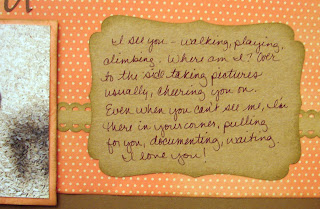 I see you - walking, playing,
climbing. Where am I? Over
to the side taking pictures
usually, cheering you on.
Even when you can't see me, I'm
there in your corner, pulling
for you, documenting, waiting.
I love you!